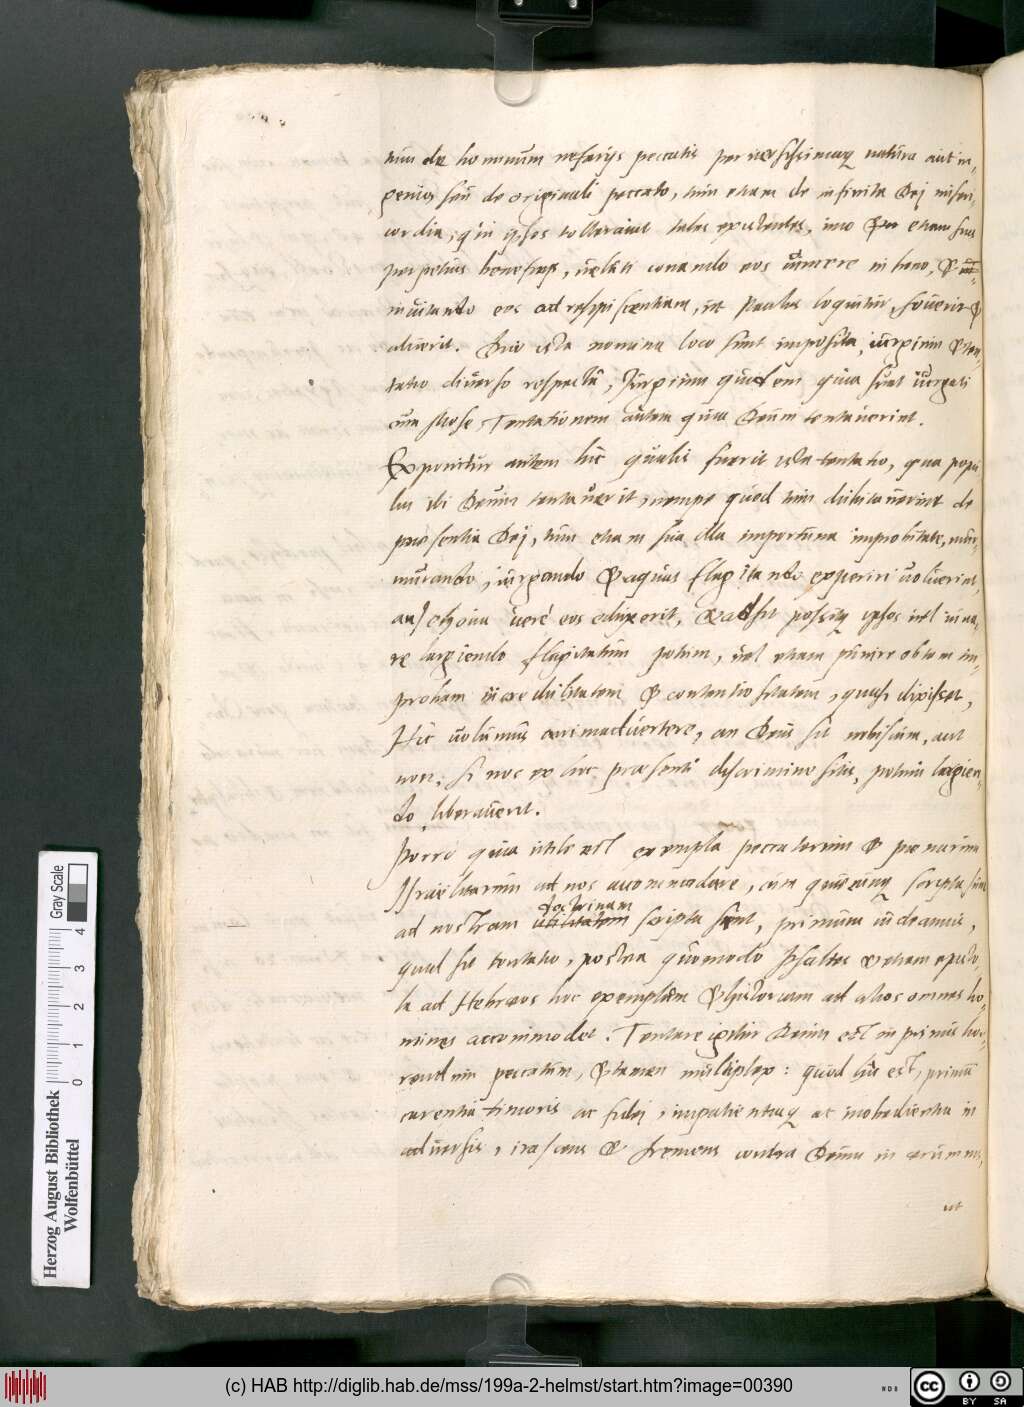 tum de hominum nefarijs peccatis peruersissimaq natura aut in,
genio, seu de originali peccato, tum etiam de infinita Dej miseri,
cordia, qui ipsos tolleravit tales existentes, imo etiam suis
perpetuis beneficijs, ueluti conando eos uincere in bono, &
inuitando eos ad resipiscentiam, ut Paulus loquitur, fouerit &
aluerit. Duo ista nomina loco sunt imposita, iurgium & ten,
tatio diuerso respectu, Jurgium quidem quia sunt iurgati
cum Mose, Tentationem autem quia Deum tentauerint.
Exponitur autem hic qualis fuerit ista tentatio, qua popu
lus ibi Deum tentauerit, nempe quod tum dubitauerint de
praesentia Dej, tum etiam sua illa importuna improbitate, mur,
murando, iurgando & aquas flagitando experiri uoluerint,
an Jehoua uere eos eduxerit, & adsit possitq ipsos uel iuua,
re largiendo flagitatum potum, uel etiam punire obtam im,
probam incredulitatem & contentiositatem, quasi dixisset,
Hic uolumus animaduertere, an Deus sit nobiscum, aut
non, si nos ex hoc praesenti discrimine sitis, potum largien,
do liberauerit.
Porro quia utile est exempla peccatorum & poenarum
Israelitarum ad nos accommodare, cum quaecunq scripta sunt
doctrinam
ad nostram utilitatem scripta sunt, primum uideamus,
quid sit tentatio, postea quomodo Psaltes & etiam episto,
la ad Hebraeos hoc exemplum & historiam ad alios omnes ho,
mines accommodet. Tentare igitur Deum est in primis hor,
rendum peccatum, & tamen multiplex: quod hic est, primum
carentia timoris ac fidej, impatientiaq ac inobedientia in
aduersis, irascens & fremens contra Deum in aerumnis,
ut
Herzog August Bibliothek
Wolfenbüttel
Gray Scale
0 1 2 3 4
(c) HAB http://diglib.hab.de/mss/199a-2-helmst/start.htm?image=00390
cc BY SA